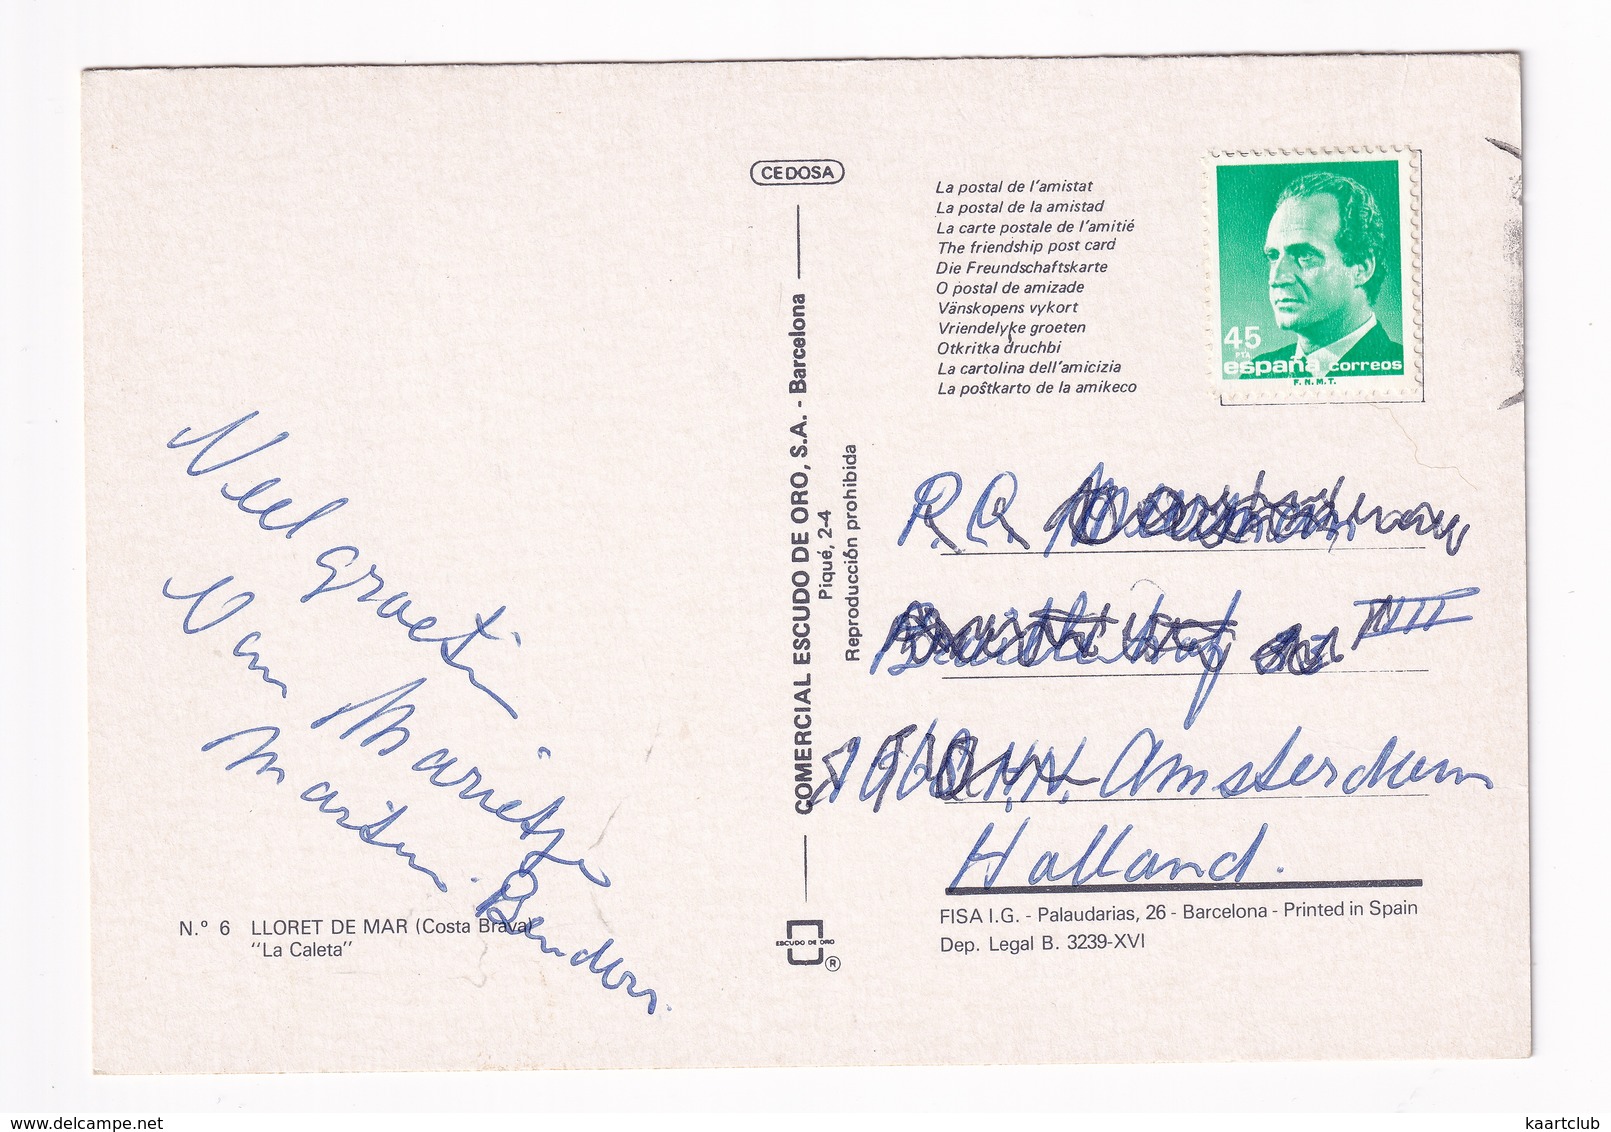 CEDOSA
La postal de l'amistat
La postal de la amistad
La carte postale de l'amitié
The friendship post card
Die Freundschaftskarte
O postal de amizade
Vänskopens vykort
Vriendelyke groeten
Otkritka druchbi
La cartolina dell'amicizia
La poŝtkarto de la amikeco
45
PTA
españa correos
F.N.M.T.
Veel groeten
Van Marietje
Martin Benders.
N.º 6 LLORET DE MAR (Costa Brava)
"La Caleta"
COMERCIAL ESCUDO DE ORO, S.A. - Barcelona
Piqué, 2-4
Reproducción prohibida
ESCUDO DE ORO
®
Amsterdam
Holland.
FISA I.G. - Palaudarias, 26 - Barcelona - Printed in Spain
Dep. Legal B. 3239-XVI
delcampe.net
kaartclub